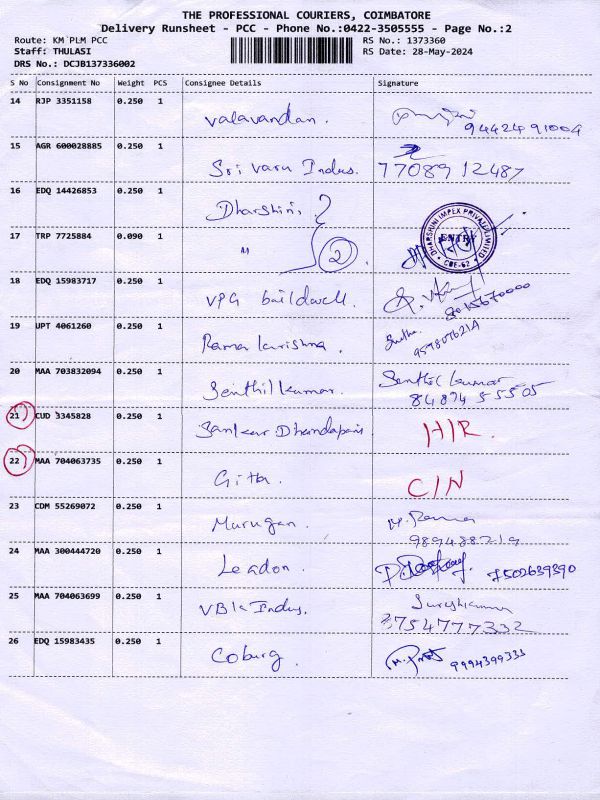 THE PROFESSIONAL COURIERS, COIMBATORE
Delivery Runsheet - PCC - Phone No.:0422-3505555 - Page No.:2
Route: KM PLM PCC
RS No.: 1373360
Staff: THULASI
RS Date: 28-May-2024
DRS No.: DCJB137336002
S No Consignment No Weight PCS Consignee Details Signature
14 RJP 3351158 0.250 1
Valavandan. 9442491004
15 AGR 600028885 0.250 1
Sri Varu Indus. 7708912487
16 EDQ 14426853 0.250 1
Dharshini
17 TRP 7725884 0.090 1
" 2
DHARSHINI IMPEX PRIVATE LIMITED
ENTRY
CBE-62
18 EDQ 15983717 0.250 1
VPG buildwell. 8015670000
19 UPT 4061260 0.250 1
Rama krishna.
20 MAA 703832094 0.250 1
Senthilkumar. Senthil kumar
84874 55505
21 CUD 3345828 0.250 1
Sankar Dhandapani H/R.
22 MAA 704063735 0.250 1
Gitta. C/N
23 CDM 55269072 0.250 1
Murugan.
989488219
24 MAA 300444720 0.250 1
Leadon. 7502639390
25 MAA 704063699 0.250 1
VBK Indus. Sureshkumar
3754777332
26 EDQ 15983435 0.250 1
Coburg. 9994399333